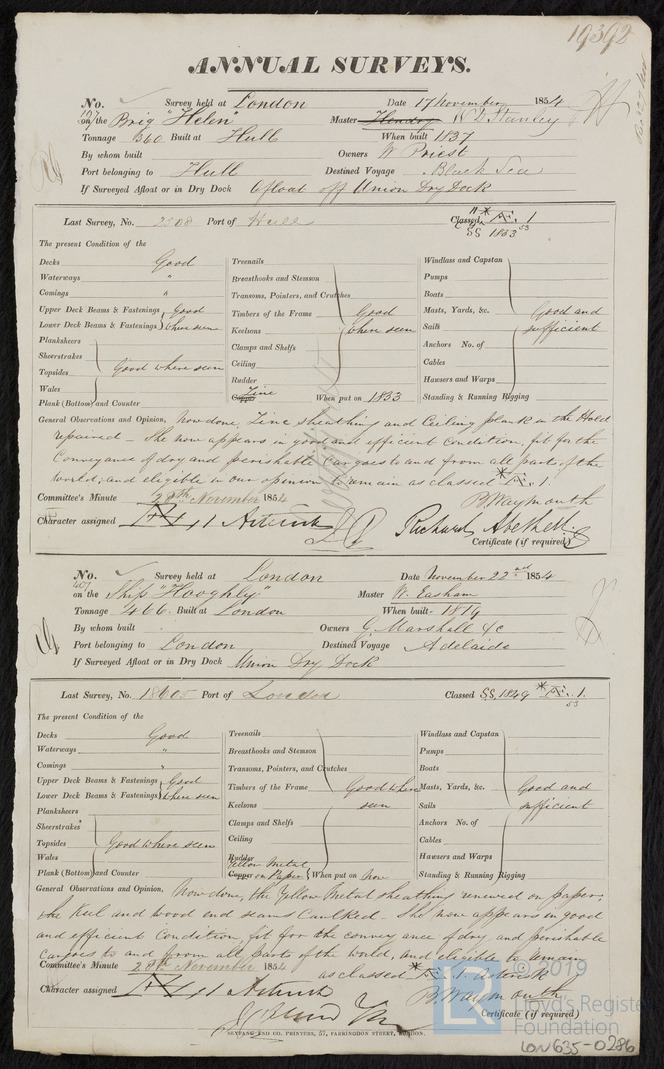 19392
ANNUAL SURVEYS.
No. Survey held at London Date 17 November 1854
on the Brig "Helen" Master Hendry W D Stanley
Tonnage 360 Built at Hull When built 1837
By whom built Owners W Priest
Port belonging to Hull Destined Voyage Black Sea
If Surveyed Afloat or in Dry Dock Afloat off Union Dry Dock
Last Survey, No. 2508 Port of Hull Classed Æ. 1
SS 1853
The present Condition of the
Decks Good Treenails Windlass and Capstan
Waterways " Breasthooks and Stemson Pumps
Comings " Transoms, Pointers, and Crutches Boats
Upper Deck Beams & Fastenings Good Timbers of the Frame Good Masts, Yards, &c. Good and
Lower Deck Beams & Fastenings where seen Keelsons where seen Sails sufficient
Planksheers Clamps and Shelfs Anchors No. of
Sheerstrakes Ceiling Cables
Topsides Good where seen Rudder Hawsers and Warps
Wales Zinc
Plank (Bottom) and Counter Copper When put on 1853 Standing & Running Rigging
General Observations and Opinion, Now done, Zinc sheathing and Ceiling plank in the Hold
repaired - She now appears in good and efficient condition, fit for the
Conveyance of dry and perishable cargoes to and from all parts of the
world, and eligible in our opinion to remain as classed * Æ. 1.
Committee's Minute 28th November 1854 B. Waymouth
Character assigned Æ 1 Asterisk
Certificate (if required)
No. Survey held at London Date November 22nd 1854
407
on the Ship "Hooghly" Master W. Easham
Tonnage 466 Built at London When built 1819
By whom built Owners G. Marshall &c
Port belonging to London Destined Voyage Adelaide
If Surveyed Afloat or in Dry Dock Union Dry Dock
Last Survey, No. 18605 Port of London Classed SS. 1849 * Æ. 1.
53
The present Condition of the
Decks Good Treenails Windlass and Capstan
Waterways " Breasthooks and Stemson Pumps
Comings " Transoms, Pointers, and Crutches Boats
Upper Deck Beams & Fastenings Good Timbers of the Frame Good where Masts, Yards, &c. Good and
Lower Deck Beams & Fastenings where seen Keelsons seen Sails sufficient
Planksheers Clamps and Shelfs Anchors No. of
Sheerstrakes Ceiling Cables
Topsides Good where seen
Wales Rudder Hawsers and Warps
Yellow Metal
Plank (Bottom) and Counter Copper on Paper When put on Now Standing & Running Rigging
General Observations and Opinion, Now done, the Yellow Metal sheathing renewed on paper,
the Keel and wood end seams Caulked - She now appears in good
and efficient Condition, fit for the conveyance of dry and perishable
Cargoes to and from all parts of the world, and eligible to remain
Committee's Minute 28th November 1854 as classed * Æ 1. Asterisk
Character assigned Æ 1 Asterisk B. Waymouth
Certificate (if required)
SEYFANG AND CO. PRINTERS, 57, FARRINGDON STREET, LONDON.
© 2019
LR Lloyd's Register
Foundation
LON635-0286